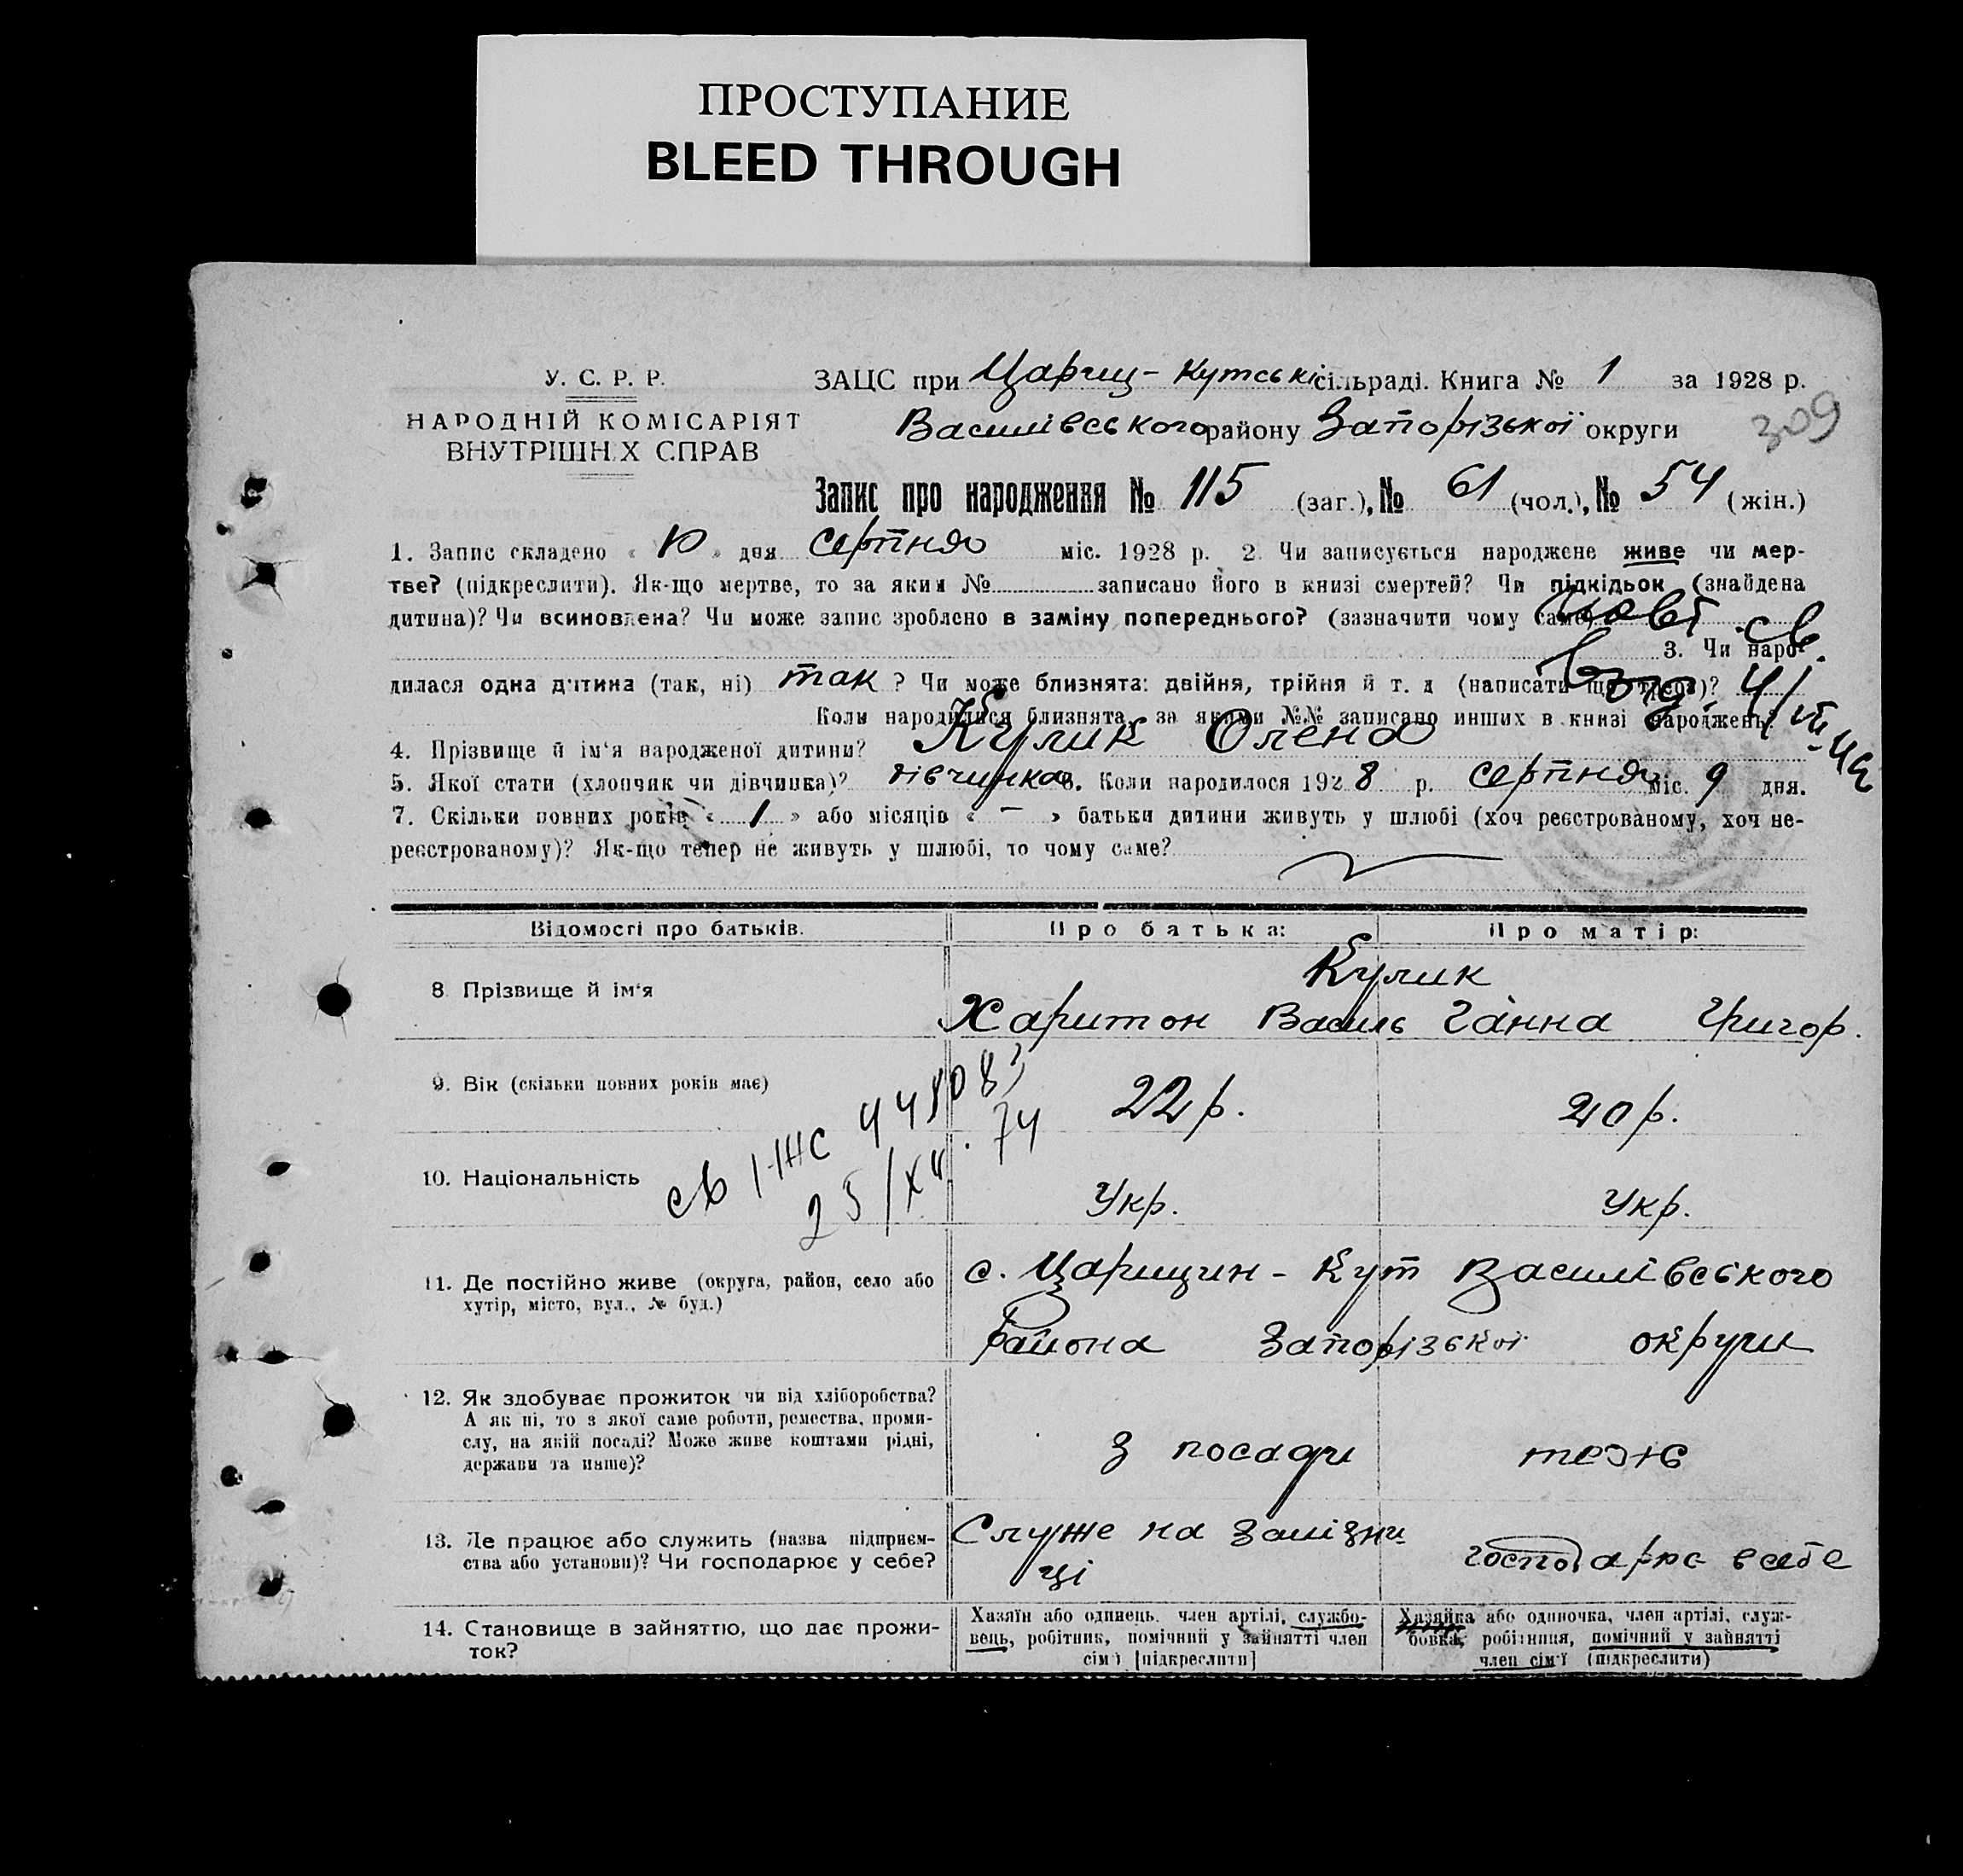 ПРОСТУПАНИЕ
BLEED THROUGH
У. С. Р. Р.
НАРОДНІЙ КОМІСАРІЯТ
ВНУТРІШНІХ СПРАВ
ЗАЦС при Цариц-Кутські сільраді. Книга № 1 за 1928 р.
Василівського району Запорізької округи
309
Запис про народження № 115 (заг.), № 61 (чол.), № 54 (жін.)
1. Запис складено « 10 » дня серпня міс. 1928 р. 2. Чи записується народжене живе чи мер-
тве? (підкреслити). Як-що мертве, то за яким № записано його в книзі смертей? Чи підкідьок (знайдена
дитина)? Чи всиновлена? Чи може запис зроблено в заміну попереднього? (зазначити чому саме)
3. Чи наро-
дилася одна дитина (так, ні) так ? Чи може близнята: двійня, трійня й т. д (написати що треба)?
Коли народилися близнята, за якими №№ записано инших в книзі народжень?
4. Прізвище й ім'я народженої дитини? Кулик Олена
5. Якої стати (хлопчик чи дівчинка)? дівчинка 6. Коли народилося 1928 р. серпня міс. 9 дня.
7. Скільки повних років « 1 » або місяців « – » батьки дитини живуть у шлюбі (хоч реєстрованому, хоч не-
реєстрованому)? Як-що тепер не живуть у шлюбі, то чому саме?
Відомості про батьків. Про батька: Про матір:
Кулик
8 Прізвище й ім'я Харитон Василь Ганна Григор.
9. Вік (скільки повних років має) 22 р. 20 р.
10. Національність Укр. Укр.
св 1-ЖС
25/XII 74
11. Де постійно живе (округа, район, село або с. Царицин-Кут Василівського
хутір, місто, вул., № буд.)
Района Запорізької округи
12. Як здобуває прожиток чи від хліборобства?
А як ні, то з якої саме роботи, ремества, проми-
слу, на якій посаді? Може живе коштами рідні, З посади теж
держави та инше)?
13. Де працює або служить (назва підприєм- Служе на залізни-
ства або установи)? Чи господарює у себе? ці господарює в себе
14. Становище в зайняттю, що дає прожи- Хазяїн або одинець, член артілі, службо- Хазяйка або одиночка, член артілі, служ-
ток? вець, робітник, помічний у зайнятті член бовка, робітниця, помічний у зайнятті
сім'ї [підкреслити] член сім'ї (підкреслити)